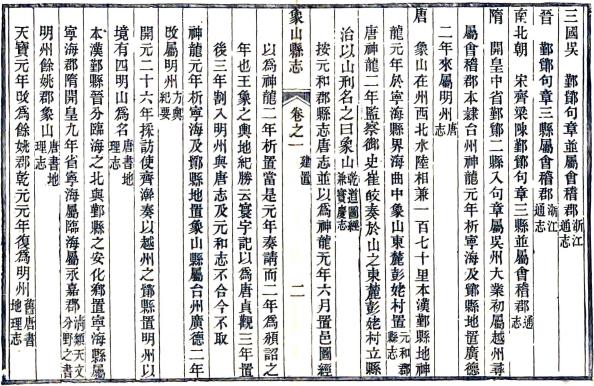 三國吳　鄞鄮句章並屬會稽郡浙江通志
晉　鄞鄮句章三縣屬會稽郡浙江通志
南北朝　宋齊梁陳鄞鄮句章三縣並屬會稽郡通志
隋　開皇中省鄞鄮二縣入句章屬吳州大業初屬越州尋
屬會稽郡本隸台州神龍元年析寧海及鄮縣地置廣德
二年來屬明州唐志
唐　象山在州西北水陸相兼一百七十里本漢鄞縣地神
龍元年於寧海縣界海曲中象山東麓彭姥村置元和郡縣志
唐神龍二年監察御史崔皎奏於山之東麓彭姥村立縣
治以山形名之曰象山乾道圖經兼寶慶志
按元和郡縣志唐志並以為神龍元年六月置邑圖經
象山縣志　卷之一　建置　二
以為神龍二年析置當是元年奏請而二年為頒詔之
年也王象之輿地紀勝云寰宇記以為唐貞觀三年置
後三年割入明州與唐志及元和志不合今不取
神龍元年析寧海及鄮縣地置象山縣屬台州廣德二年
改屬明州方輿紀要
開元二十六年採訪使齊澣奏以越州之鄮縣置明州以
境有四明山為名唐書地理志
本漢鄞縣晉分臨海之北與鄞縣之安化鄉置寧海縣屬
寧海郡隋開皇九年省寧海屬臨海屬永嘉郡清類天文分野之書
明州餘姚郡象山唐書地理志
天寶元年改為餘姚郡乾元元年復為明州舊唐書地理志